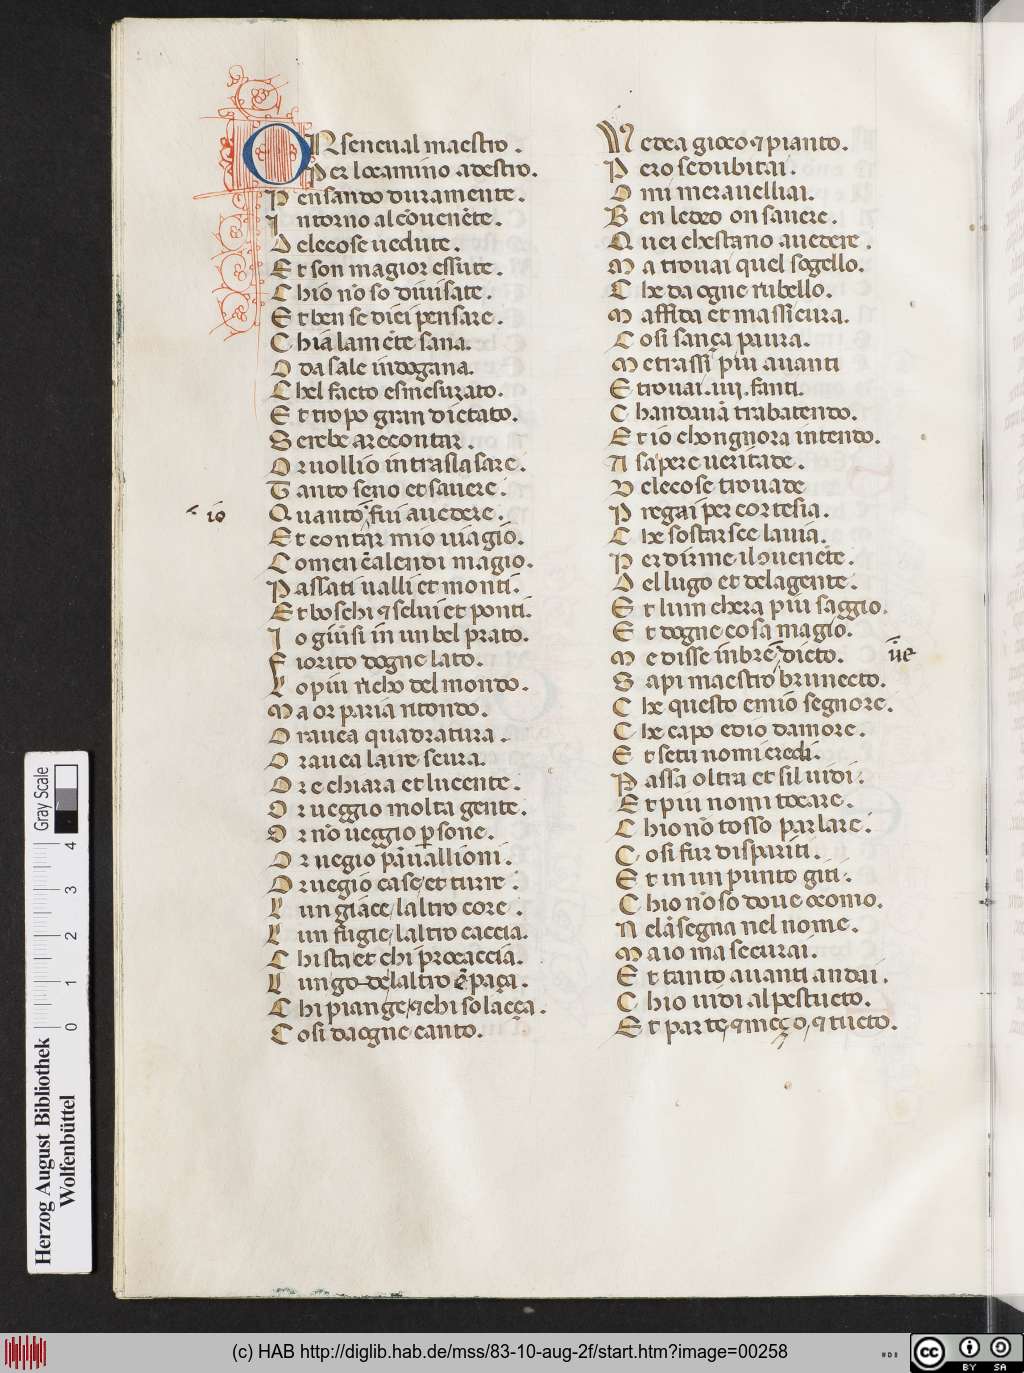 ORsen eual maestro .
Per locamino adestro.
Pensando duramente .
Intorno al cōuenēte .
Delecose uedute .
Et son magior essute .
Chio nōso diuisate .
Et ben se diei pensare .
Chiā lamēte sana.
Oda sale indogana.
Chel facto esmesurato.
Et tropo gran dictato.
Serebe arecontar .
Or uollio intraslasare .
Tanto seno et sauere .
Quanto fui auedere .
io
Et contar mio uiagio.
Comen calendi magio.
Passati ualli et monti.
Et boschi ⁊ selui et ponti.
Io giūsi in un bel prato.
Fiorito dogne lato.
Lo piu richo del mondo.
Ma or paria ritondo.
Orauea quadratura .
Orauea laire scura.
Ore chiara et lucente .
Or ueggio molta gente .
Or nō ueggio psone .
Or uegio pāuallioni .
Or uegio case et turre .
Lun giace laltro core .
Lun fugie laltro caccia.
Chista et chi procaccia.
Lungo de laltro ēpaça .
Chi piange ⁊ chi solacça .
Cosi daogne canto.
Vedea gioco ⁊ pianto.
Pero sedubitai .
O mi merauelliai.
Ben ledeo on sauere.
Quei chestano auedere .
Ma trouai quel sogello.
Che da ogne rubello.
Maffida et massicura .
Cosi sança paura .
Metrassi piu auanti
Etrouai .iiij. fanti.
Chandauā trabatendo.
Et io chongnora intendo.
A sapere ueritade .
Delecose trouade
Pregai per cortesia .
Che sostarsee lauia.
Per dirme ilɔuenēte .
Del lugo et delagente .
Et lum chera piu saggio.
Et dogne cosa magio.
Me disse inbrē dicto.
ūe
Sapi maestro brunecto.
Che questo emiō segnore .
Che capo edio damore .
Et setu nomi credi.
Passa oltra et sil uidi .
Et piu nomi tocare .
Chio nō tosso parlare .
Cosi fur dispariti .
Et in un punto giti .
Chio nōso doue ocomo.
Nelāsegna nel nome .
Maio ma securai .
Et tanto auanti andai .
Chio uidi al pestucto.
Et parte ⁊ meço, ⁊ tucto.
Herzog August Bibliothek
Wolfenbüttel
Gray Scale
0 1 2 3 4
(c) HAB http://diglib.hab.de/mss/83-10-aug-2f/start.htm?image=00258
cc BY SA